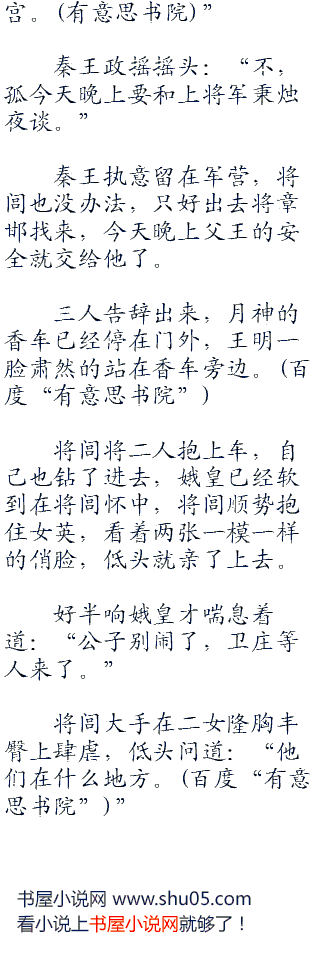 宫。(有意思书院)”
秦王政摇摇头：“不，
孤今天晚上要和上将军秉烛
夜谈。”
秦王执意留在军营，将
闾也没办法，只好出去将章
邯找来，今天晚上父王的安
全就交给他了。
三人告辞出来，月神的
香车已经停在门外，王明一
脸肃然的站在香车旁边。(百
度“有意思书院”)
将闾将二人抱上车，自
己也钻了进去，娥皇已经软
到在将闾怀中，将闾顺势抱
住女英，看着两张一模一样
的俏脸，低头就亲了上去。
好半响娥皇才喘息着
道：“公子别闹了，卫庄等
人来了。”
将闾大手在二女隆胸丰
臀上肆虐，低头问道：“他
们在什么地方。(百度“有意
思书院”)”
书屋小说网 www.shu05.com
看小说上书屋小说网就够了！